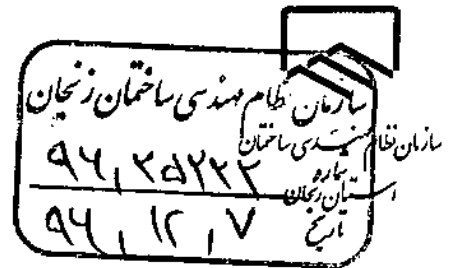 سازمان نظام مهندسی ساختمان زنجان
سازمان نظام مهندسی ساختمان
استان زنجان
شماره ۹۶,۳۵۲۳۳
تاریخ ۹۶,۱۲,۷